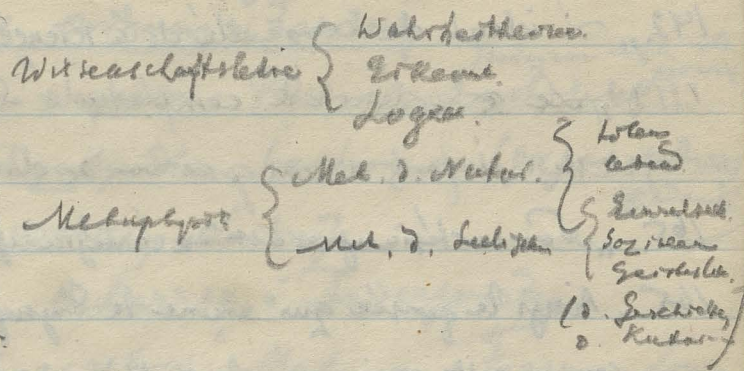 Wissenschaftslehre { Wahrheitstheorie.
Erkennt.
Logik.
Metaphysik { Met. d. Natur. {
lebend
Met. d. Seelischen {
Sozialen
Geistesleb.
(d. Geschichte,
d. Kultur)